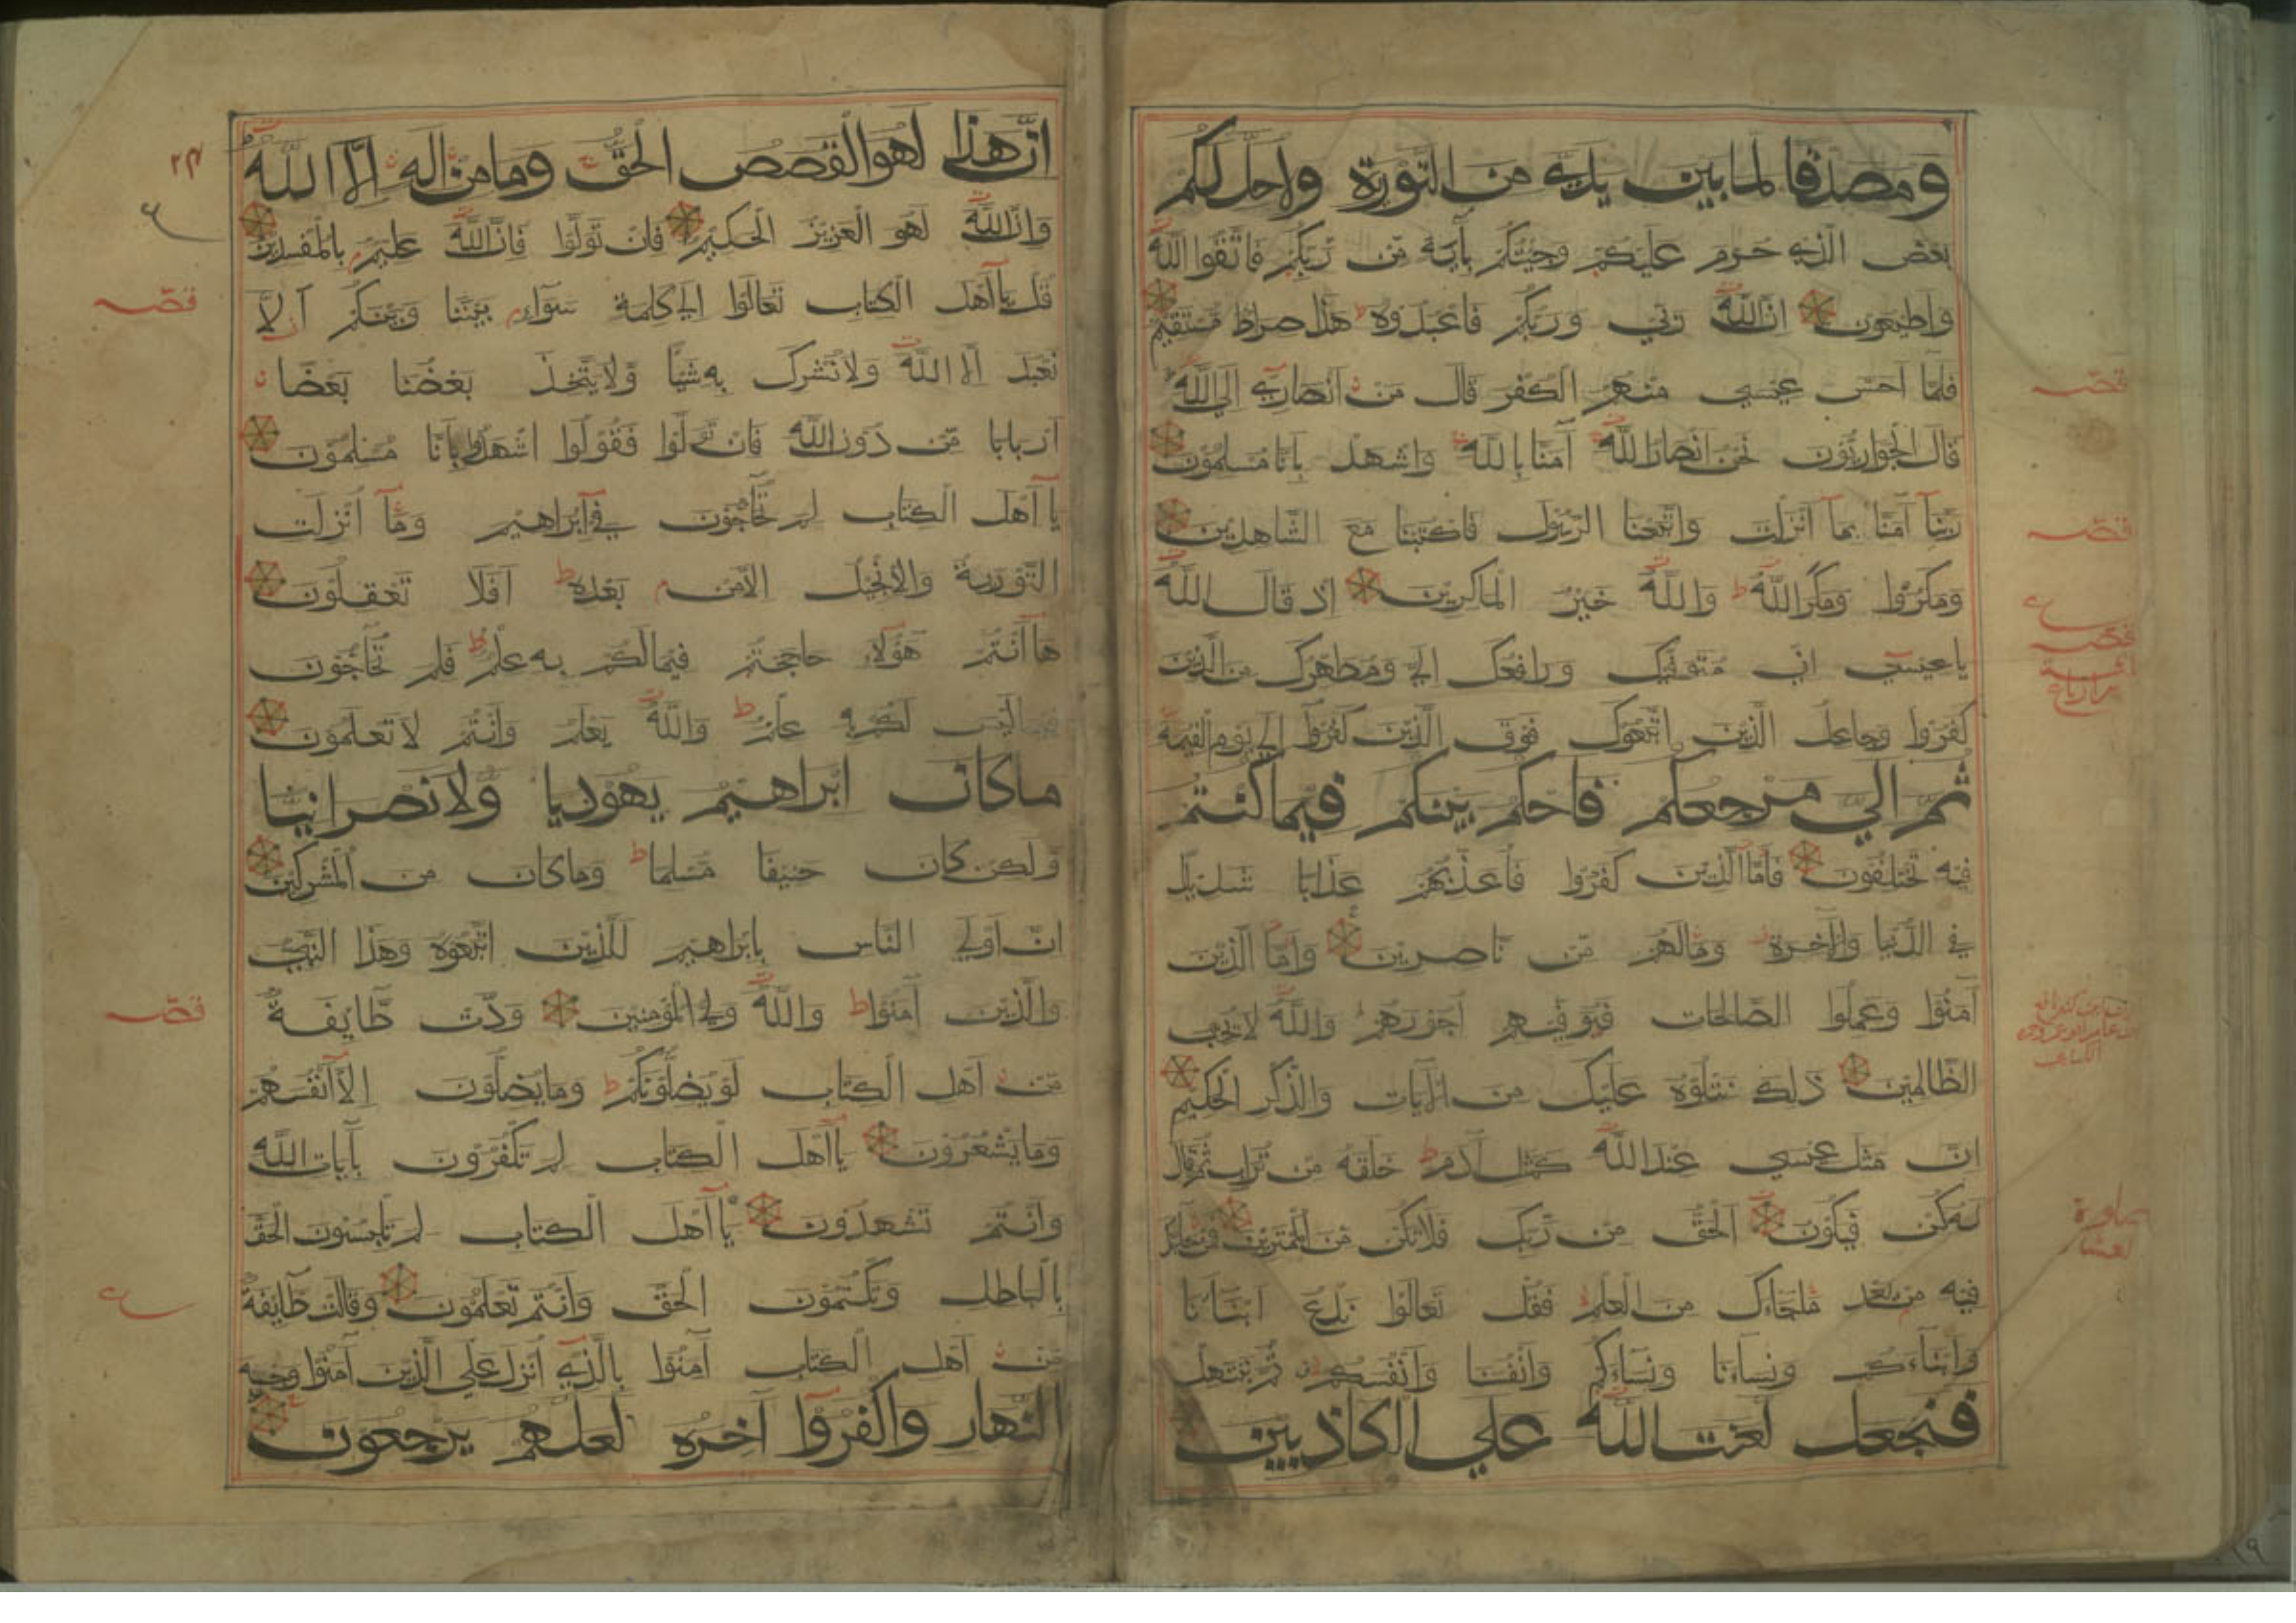 ومصدقا لما بين يدي من التورية ولاحل لكم
بعض الذي حرم عليكم وجئتكم بآية من ربكم فاتقوا الله
واطيعون ان الله ربي وربكم فاعبدوه هذا صراط مستقيم
فلما احس عيسى منهم الكفر قال من انصاري الى الله
قال الحواريون نحن انصار الله آمنا بالله واشهد بانا مسلمون
ربنا آمنا بما انزلت واتبعنا الرسول فاكتبنا مع الشاهدين
ومكروا ومكر الله والله خير الماكرين اذ قال الله
يا عيسى اني متوفيك ورافعك الي ومطهرك من الذين
كفروا وجاعل الذين اتبعوك فوق الذين كفروا الى يوم القيمة
ثم الي مرجعكم فاحكم بينكم فيما كنتم
فيه تختلفون فاما الذين كفروا فاعذبهم عذابا شديدا
في الدنيا والآخرة ومالهم من ناصرين واما الذين
آمنوا وعملوا الصالحات فيوفيهم اجورهم والله لا يحب
الظالمين ذلك نتلوه عليك من الآيات والذكر الحكيم
ان مثل عيسى عند الله كمثل آدم خلقه من تراب ثم قال
له كن فيكون الحق من ربك فلا تكن من الممترين فمن حاجك
فيه من بعد ما جاءك من العلم فقل تعالوا ندع ابناءنا
وابناءكم ونساءنا ونساءكم وانفسنا وانفسكم ثم نبتهل
فنجعل لعنت الله على الكاذبين
قصه
قصه
ان هذا لهو القصص الحق وما من اله الا الله
وان الله لهو العزيز الحكيم فان تولوا فان الله عليم بالمفسدين
قل يا اهل الكتاب تعالوا الى كلمة سواء بيننا وبينكم الا
نعبد الا الله ولا نشرك به شيأ ولا يتخذ بعضنا بعضا
اربابا من دون الله فان تولوا فقولوا اشهدوا بانا مسلمون
يا اهل الكتاب لم تحاجون في ابراهيم وما انزلت
التورية والانجيل الا من بعده افلا تعقلون
ها انتم هؤلاء حاججتم فيما لكم به علم فلم تحاجون
فيما ليس لكم به علم والله يعلم وانتم لا تعلمون
ما كان ابراهيم يهوديا ولا نصرانيا
ولكن كان حنيفا مسلما وما كان من المشركين
ان اولى الناس بابراهيم للذين اتبعوه وهذا النبي
والذين آمنوا والله ولي المؤمنين ودت طايفة
من اهل الكتاب لو يضلونكم وما يضلون الا انفسهم
وما يشعرون يا اهل الكتاب لم تكفرون بآيات الله
وانتم تشهدون يا اهل الكتاب لم تلبسون الحق
بالباطل وتكتمون الحق وانتم تعلمون وقالت طايفة
من اهل الكتاب آمنوا بالذي انزل على الذين آمنوا وجه
النهار واكفروا آخره لعلهم يرجعون
قصه
قصه